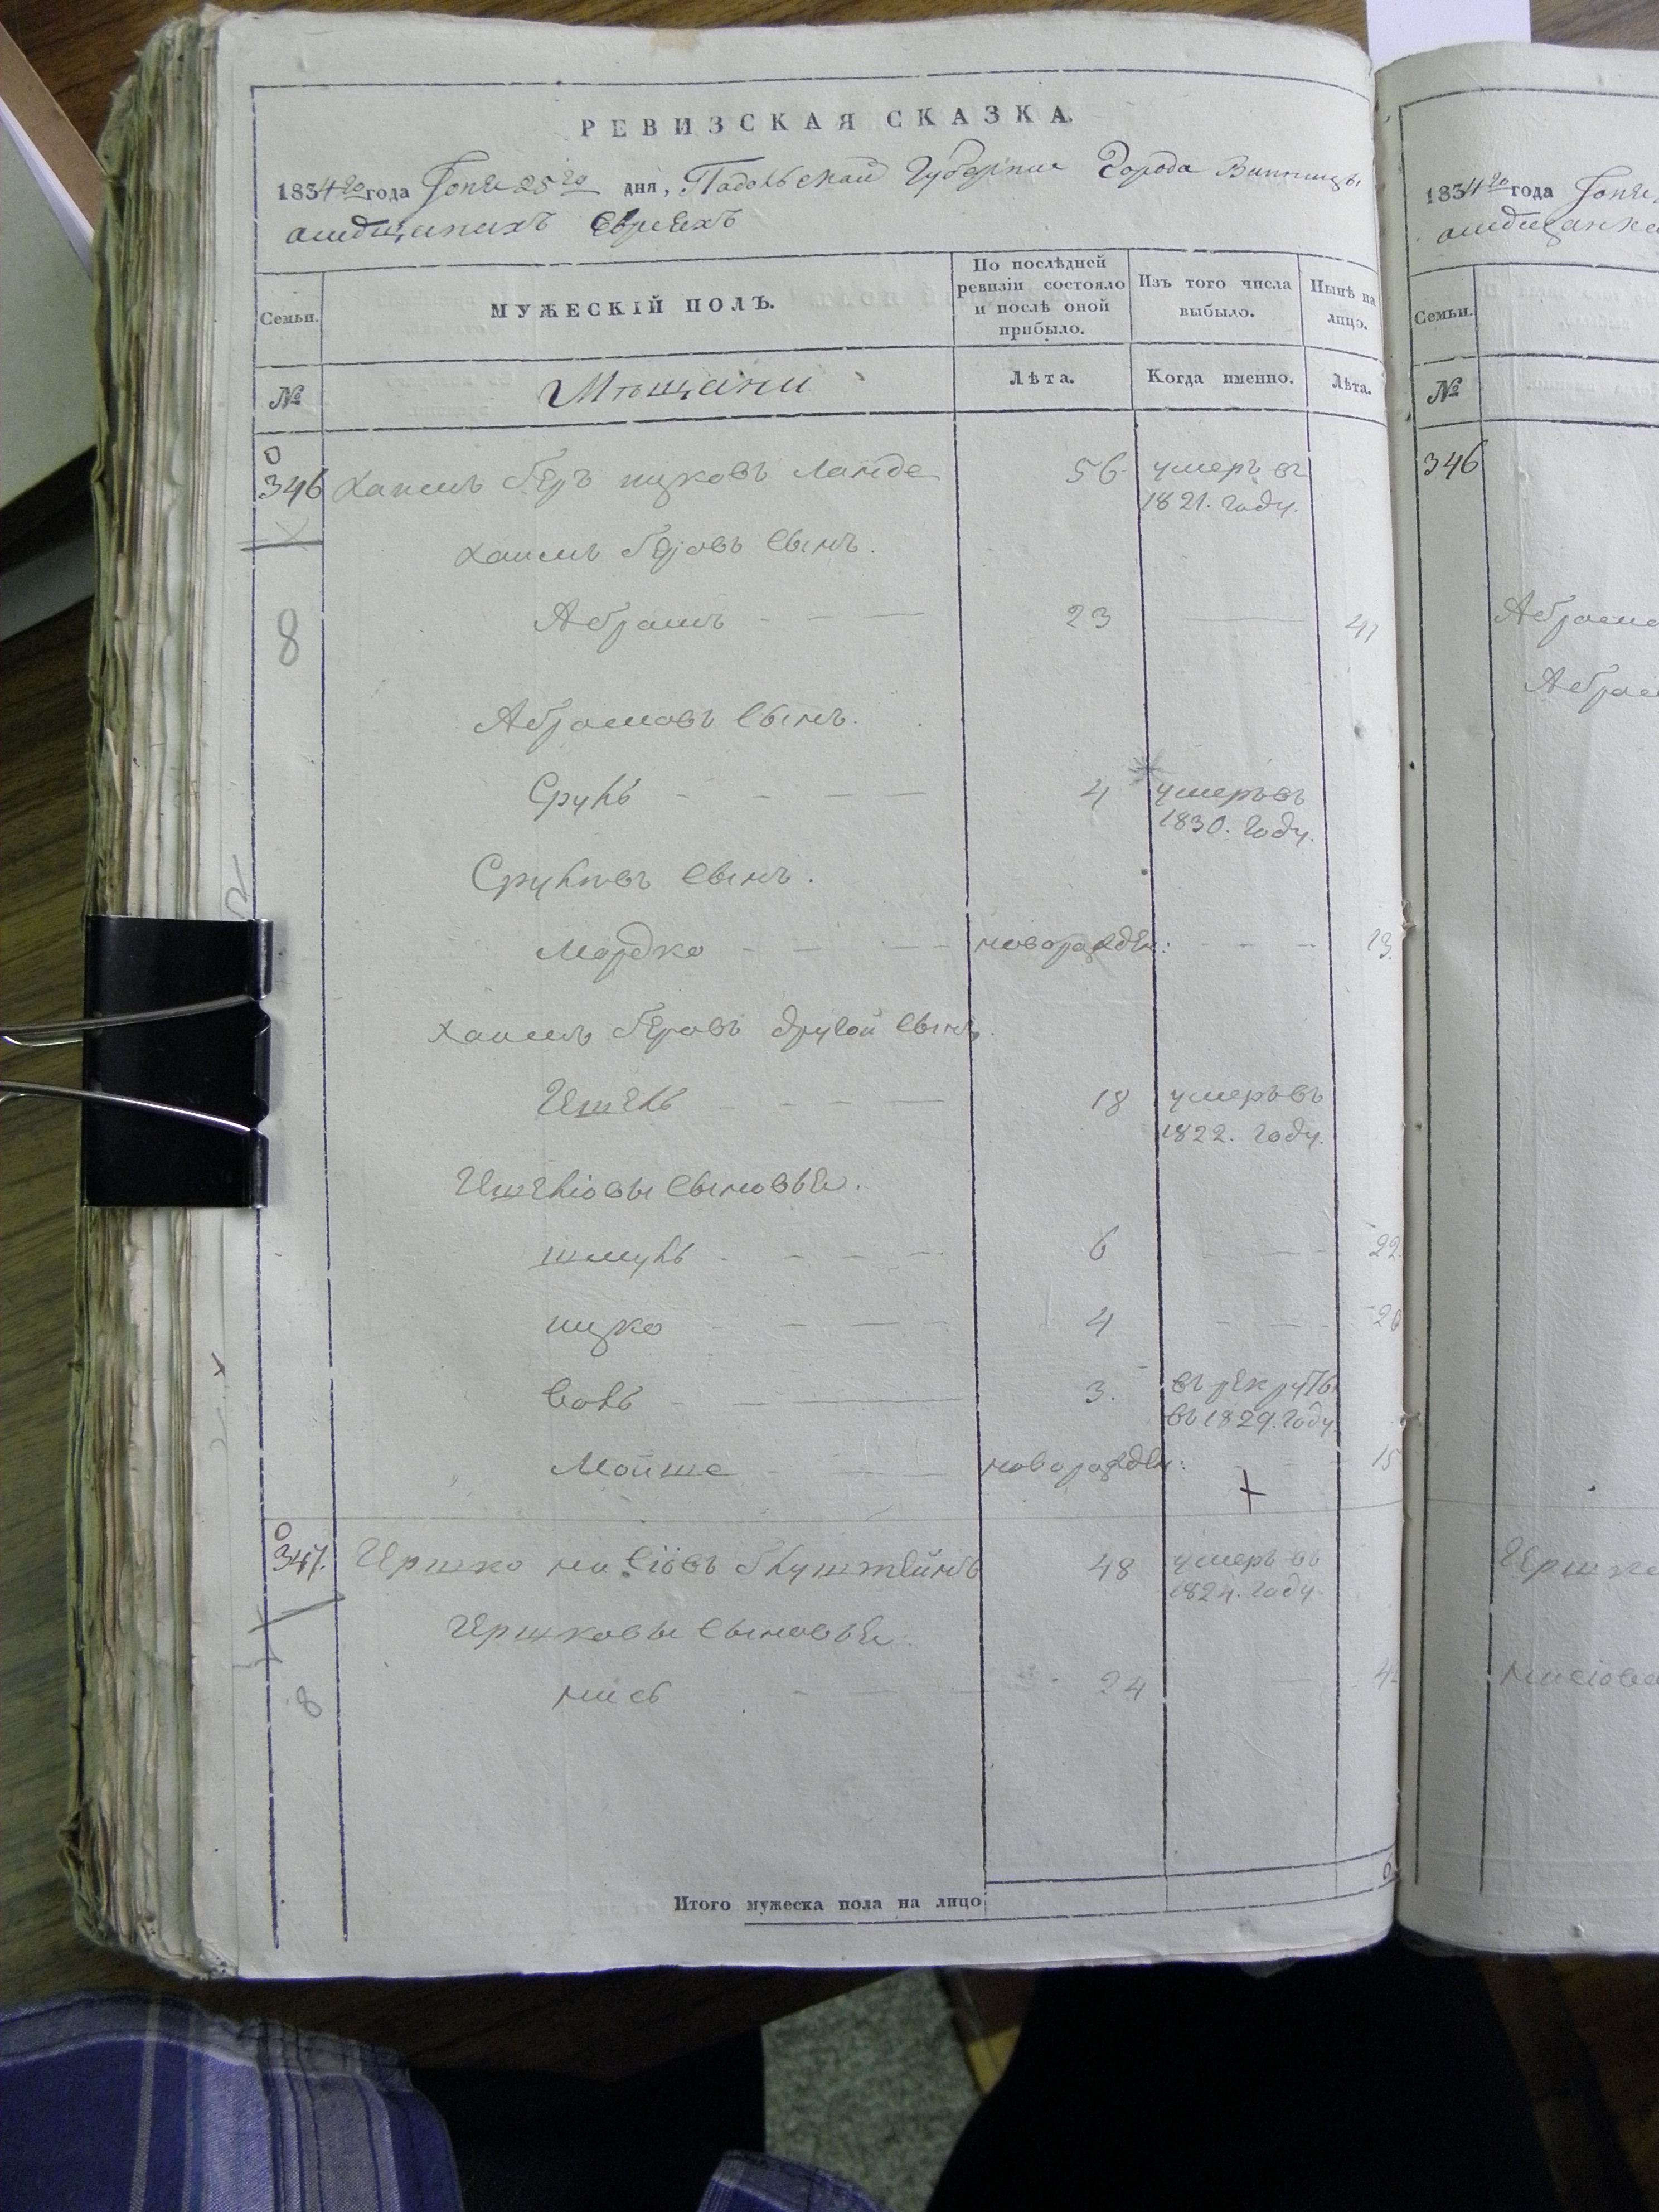 РЕВИЗСКАЯ СКАЗКА.
1834го года Іюня 25го дня, Подольской Губерніи Города Винницы
о мѣщанахъ Евреяхъ
Семьи.
МУЖЕСКІЙ ПОЛЪ.
По послѣдней ревизіи состояло и послѣ оной прибыло.
Изъ того числа выбыло.
Нынѣ на лицо.
№
Мѣщани
Лѣта.
Когда именно.
Лѣта.
346 Хаимъ Беръ ицковъ Ланде 56 умеръ въ
1821. году.
Хаимъ Беровъ Сынъ.
8
Абрамъ 23 41
Абрамовъ Сынъ.
Сруль 4 умеръ въ
1830. году.
Срулювъ Сынъ.
Мордко новорожден: 13.
Хаимъ Беровъ другой Сынъ.
18 умеръ въ
1822. году.
Сыновья.
шмуль 6 22.
ицко 4 20
Воль 3. въ рекруты
въ 1829. году
Мойше новорожден: 15
347. Гершко 48 умеръ въ
1824. году.
Гершковы Сыновья.
8
24 4
Итого мужеска пола на лицо
1834го года Іюня
о мѣщанка
Семьи.
№
346
Абрамо
Абрам
Гершк